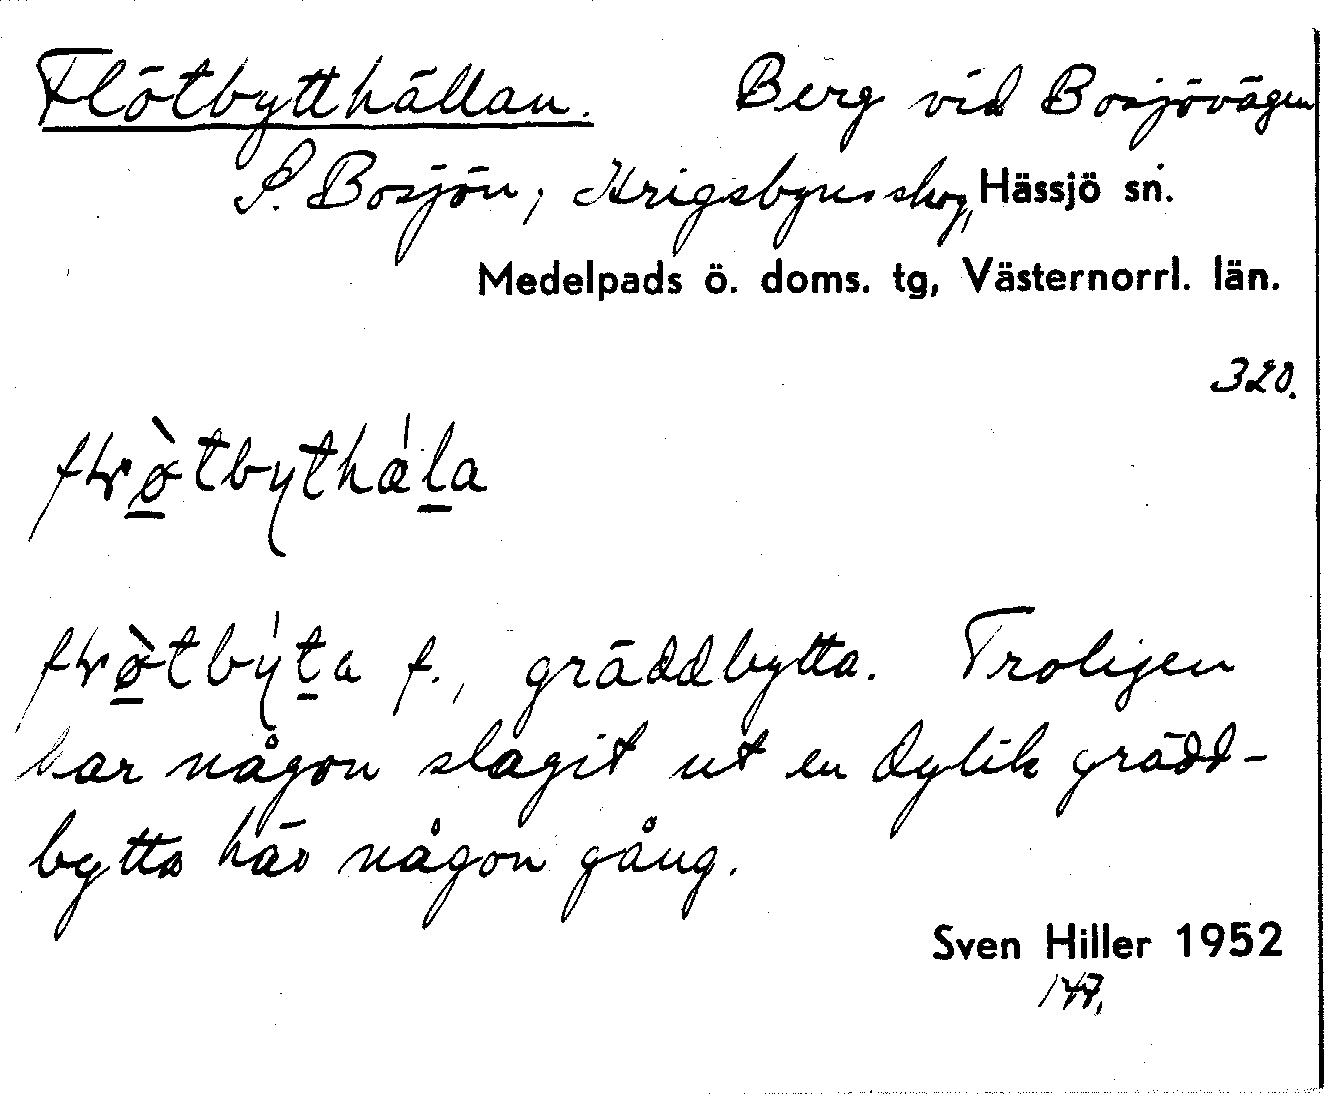 Flötbytthällan. Berg vid Bosjövägen
S. Bosjön, Krigsbyns skog, Hässjö sn.
Medelpads ö. doms. tg, Västernorrl. län.
320.
fɽø̠̀tbythæ̍l̠a
fɽø̠̀tby̍t̠a f., gräddbytta. Troligen
har någon slagit ut en dylik grädd-
bytta här någon gång.
Sven Hiller 1952
147.